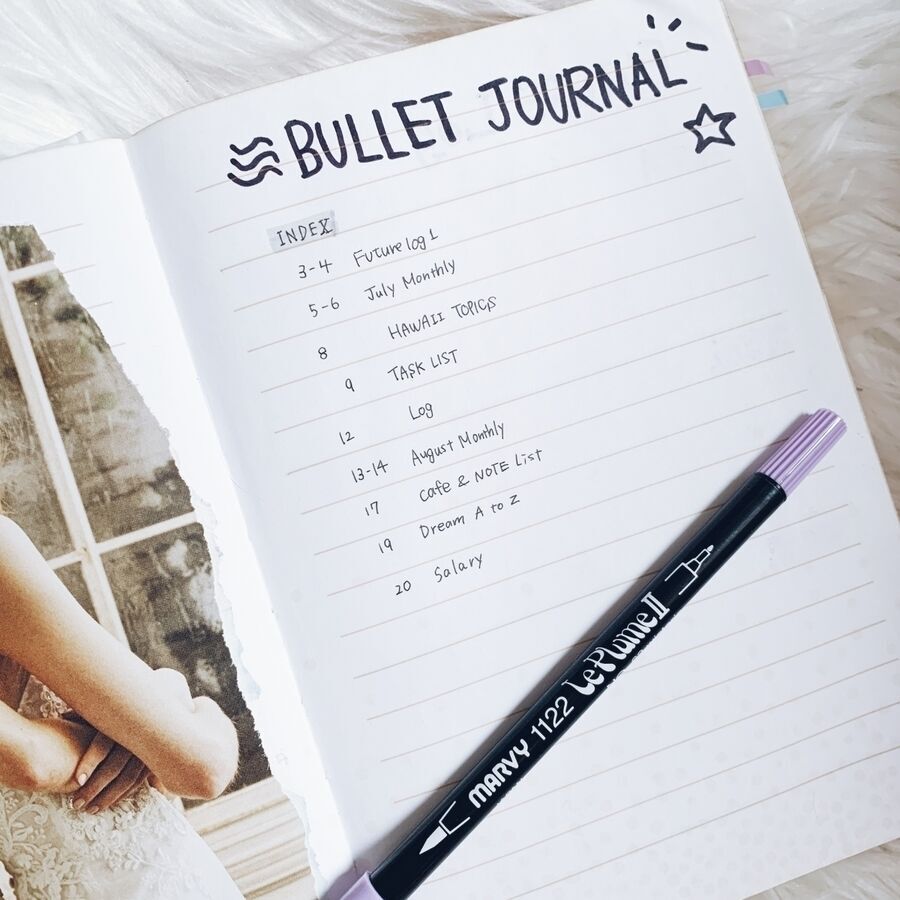 BULLET JOURNAL
INDEX
3-4 Future log 1
5-6 July Monthly
8 HAWAII TOPICS
9 TASK LIST
12 Log
13-14 August Monthly
17 Cafe & NOTE List
19 Dream A to Z
20 Salary
MARVY 1122 Le Plume II